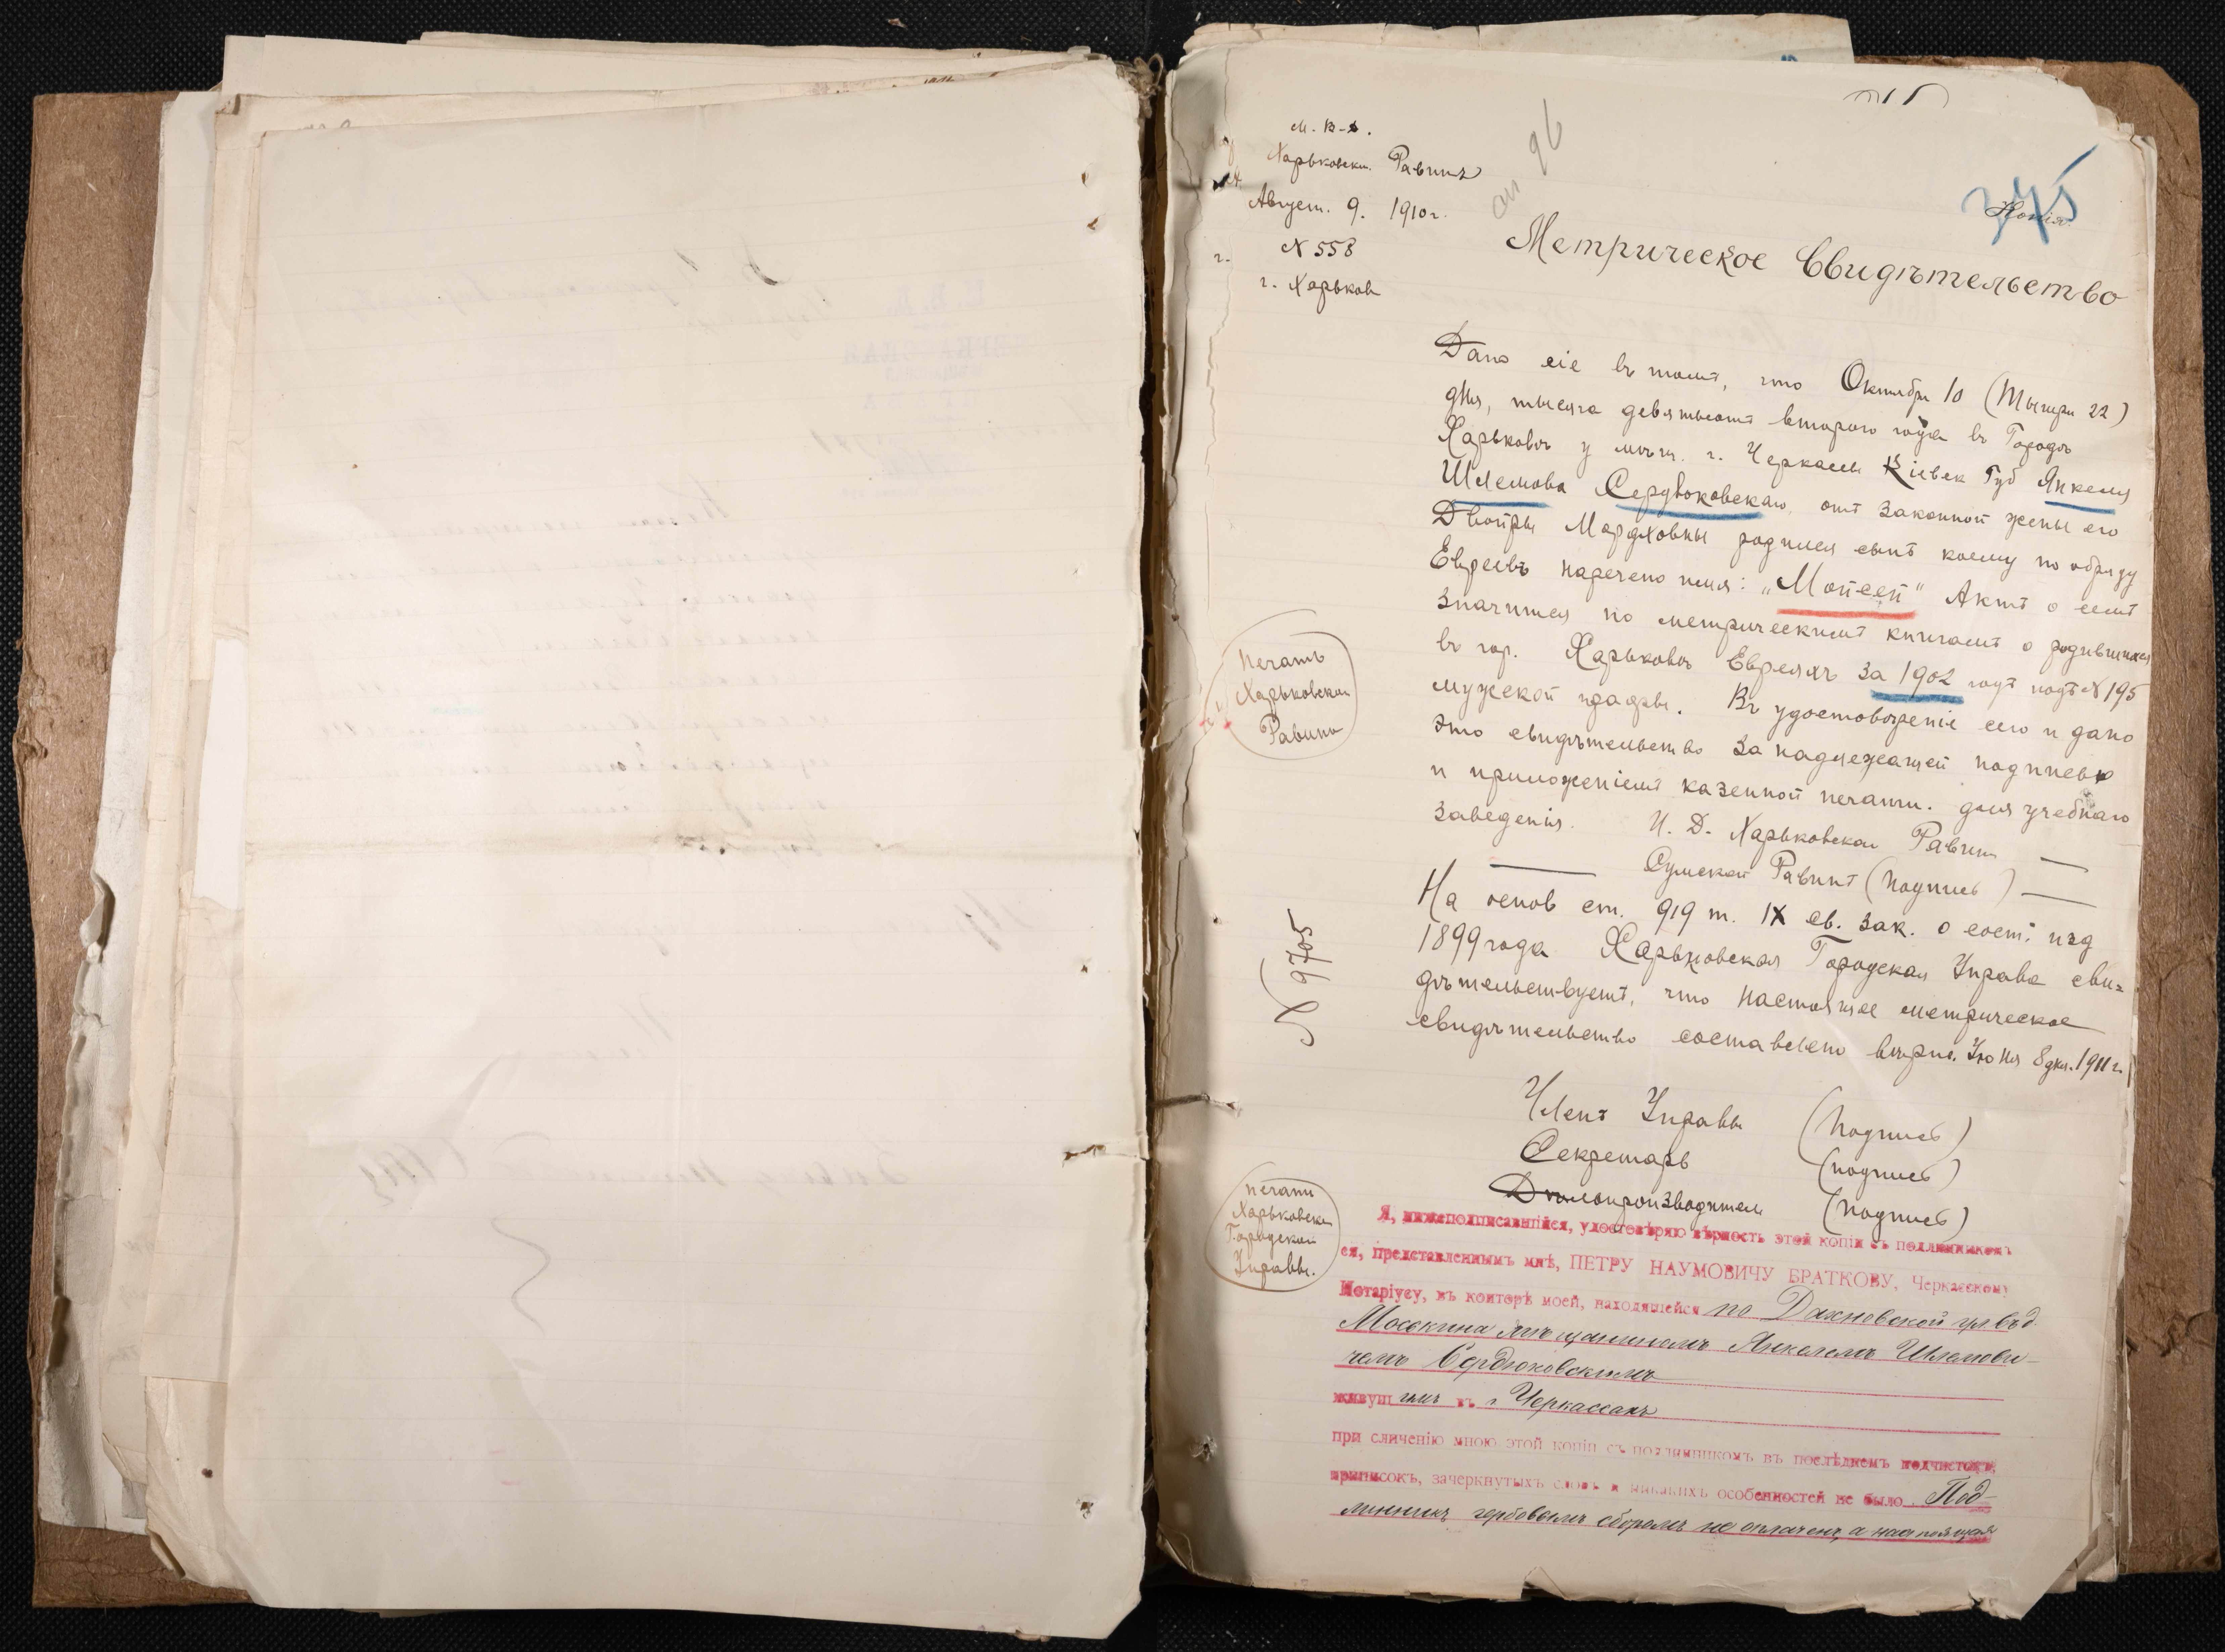 М. В. Д.
Харьковскій Равинъ
Август. 9. 1910 г.
№ 558
г. Харьков
96
245
Копія
Метрическое Свидѣтельство
Дано сіе въ томъ, что Октября 10 (Тышри 22)
дня, тысяча девятьсотъ второго года въ Городѣ
Харьковѣ у мѣщ. г. Черкассы Кіевск Губ Янкеля
Шлемова Сердюковскаго отъ законной жены его
Двойры Мордховны родился сынъ коему по обряду
Евреевъ наречено имя: „Мойсей" Актъ о семъ
значится по метрическимъ книгамъ о родившихся
въ гор. Харьковѣ Евреяхъ за 1902 годъ подъ № 195
мужской графы. Въ удостовѣреніе сего и дано
это свидѣтельство за надлежащей подписью
и приложеніемъ казенной печати. для учебнаго
заведенія. И. Д. Харьковскаго Равина
Сумской Равинъ (подпись)
Печать
Харьковскаго
Равина
На основ ст. 919 т. IX св. зак. о сост. изд
1899 года Харьковская Городская Управа сви=
дѣтельствуетъ, что настоящее метрическое
свидѣтельство составлено вѣрно. Іюня 8 дня. 1911 г.
№ 9705
Членъ Управы (подпись)
Секретарь (подпись)
Дѣлопроизводитель (подпись)
печати
Харьковской
Городской
Управы.
Я, нижеподписавшійся, удостовѣряю вѣрность этой копіи съ подлинникомъ
ея, представленнымъ мнѣ, ПЕТРУ НАУМОВИЧУ БРАТКОВУ, Черкасскому
Нотаріусу, въ конторѣ моей, находящейся по Дахновской ул. въ д.
Моськина мѣщаниномъ Янкелемъ Шлемови-
чемъ Сердюковскимъ
живущимъ въ г. Черкассахъ
при сличеніи мною этой копіи съ подлинникомъ въ послѣднемъ подчистокъ,
приписокъ, зачеркнутыхъ словъ и никакихъ особенностей не было. Под-
линникъ гербовымъ сборомъ не оплаченъ, а настоящая